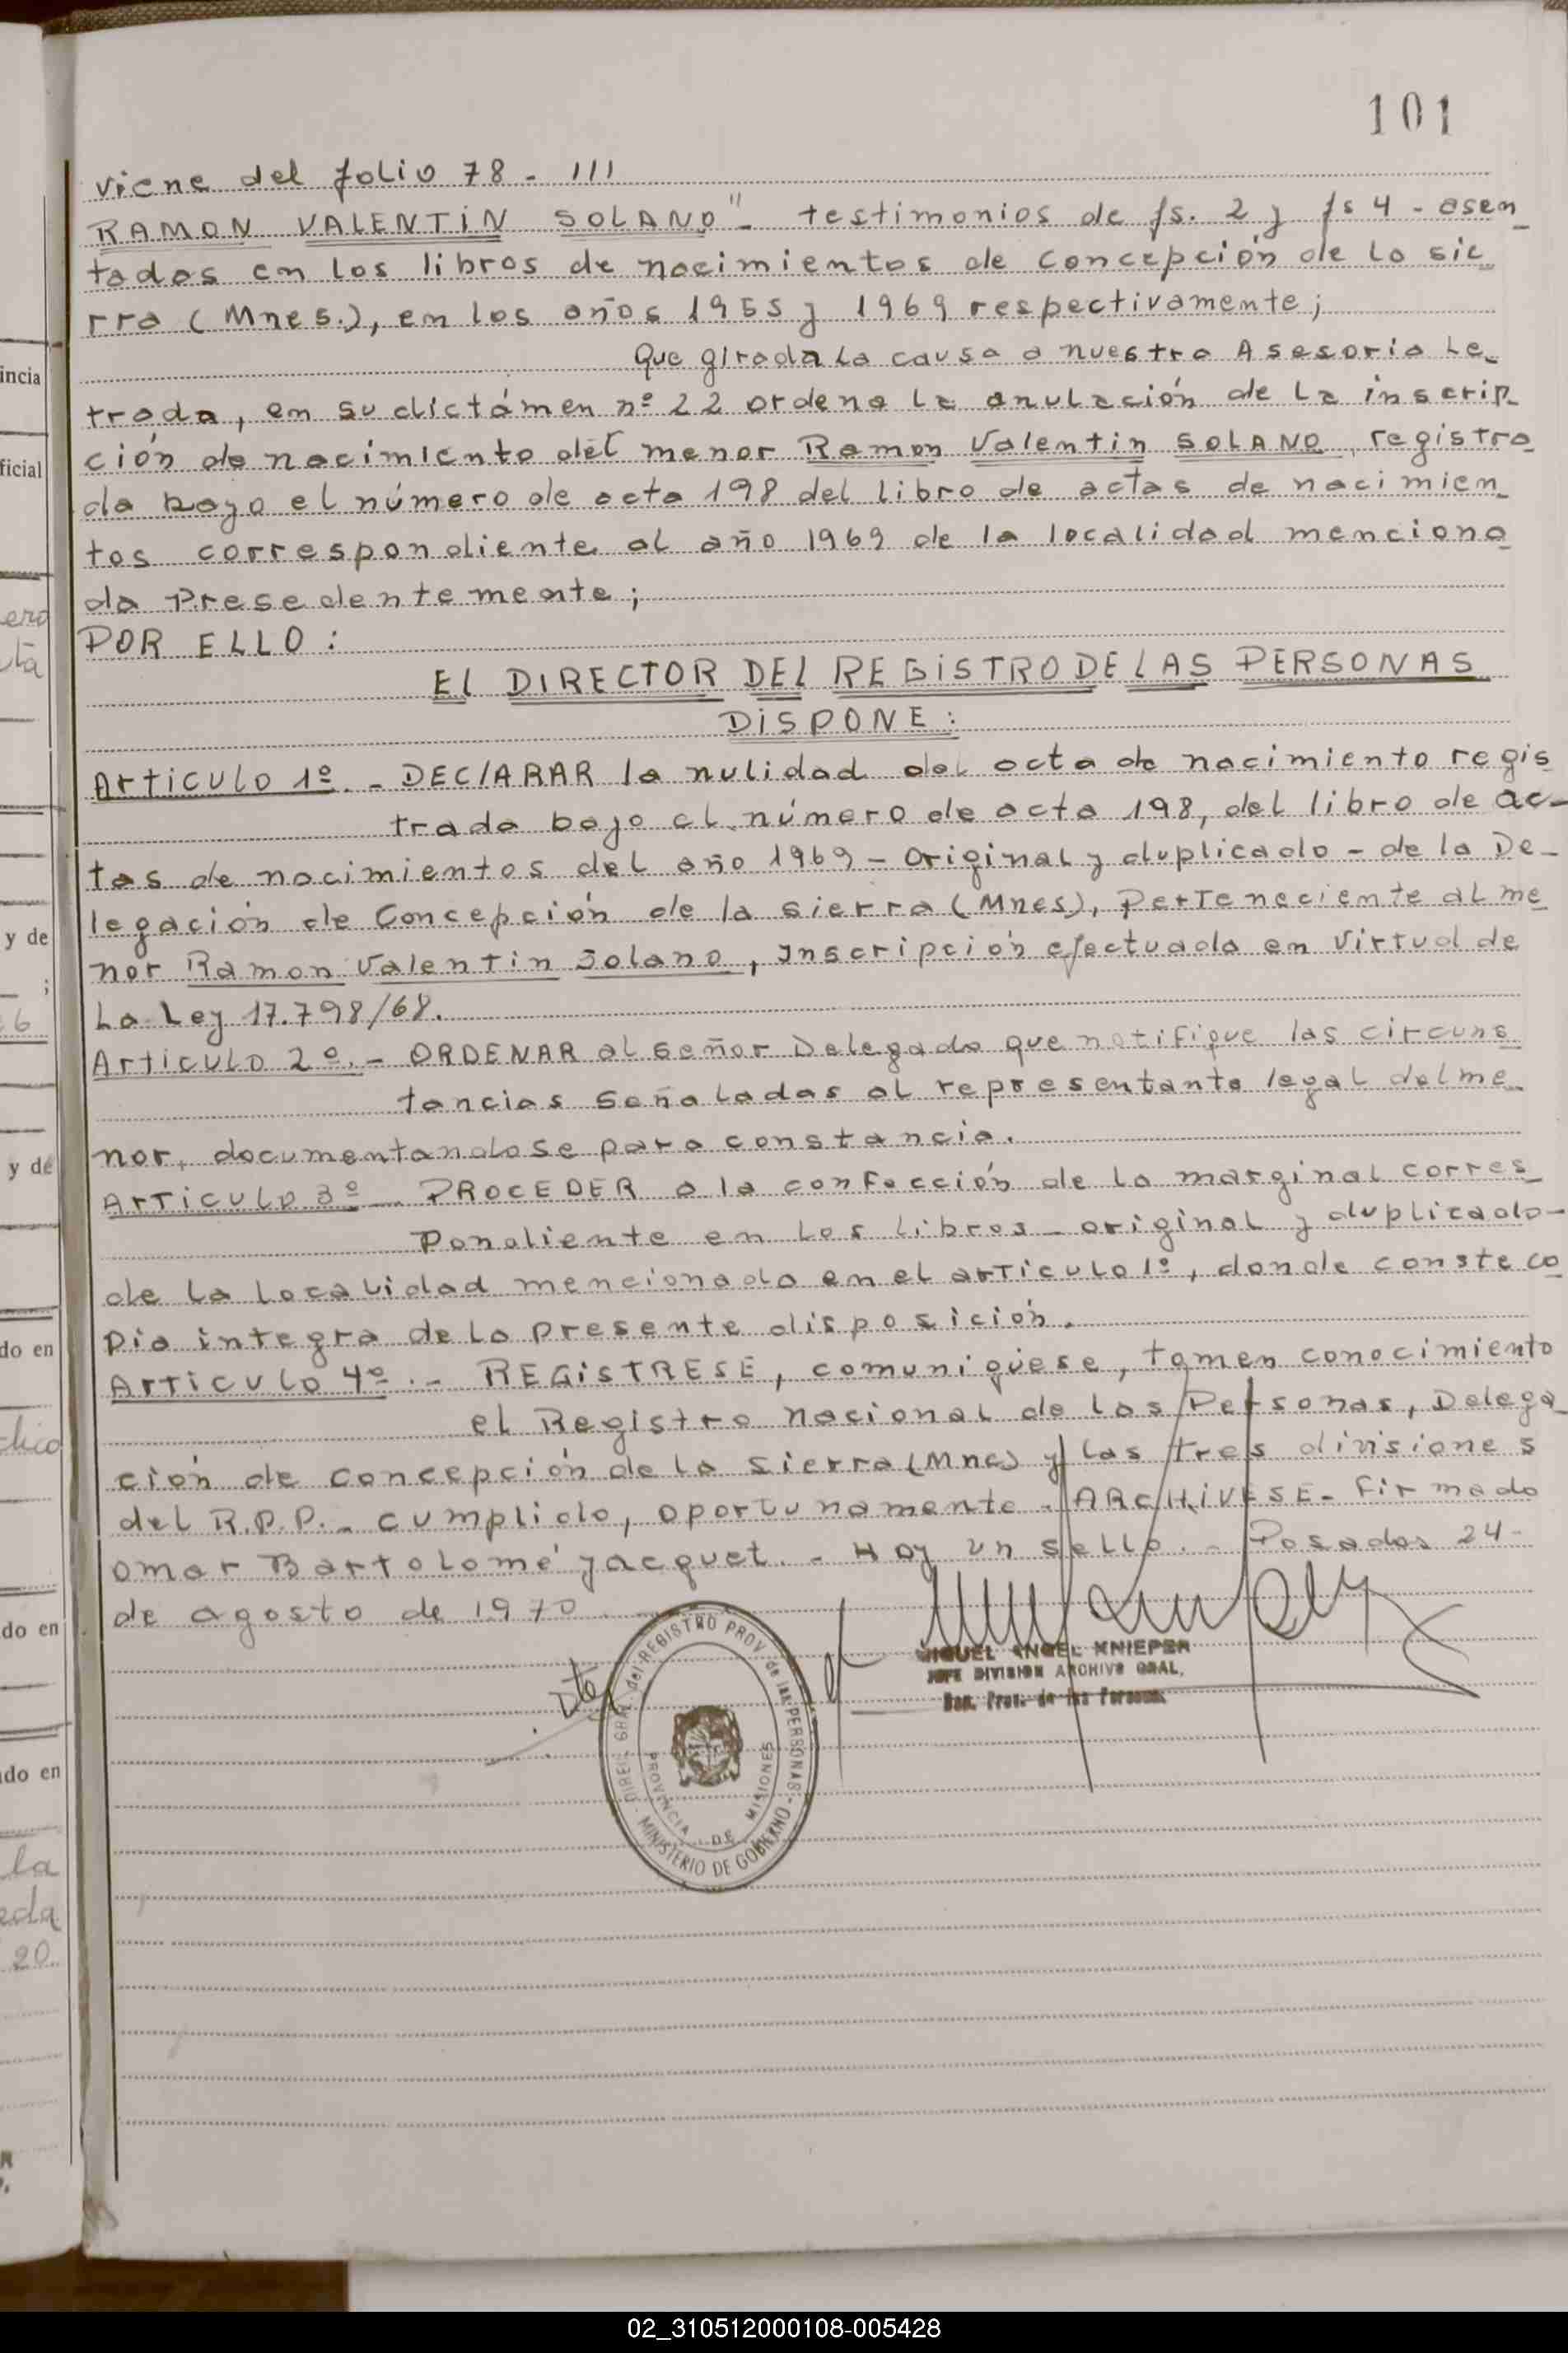 101
viene del folio 78 - ///
RAMON VALENTIN SOLANO" - testimonios de fs. 2 y fs 4 - asen_
tados en los libros de nacimientos de Concepción de la sie_
rra (Mnes.), en los años 1955 y 1969 respectivamente;
Que girada la causa a nuestra Asesoria Le_
trada, en su dictámen nº 22 ordena la anulación de la inscrip_
ción de nacimiento del menor Ramon Valentin SOLANO, registra_
da bajo el número de acta 198 del libro de actas de nacimien_
tos correspondiente al año 1969 de la localidad menciona_
da Presedentemente;
POR ELLO:
El DIRECTOR DEL REGISTRO DE LAS PERSONAS
DISPONE:
Articulo 1º. - DEClARAR la nulidad del acta de nacimiento regis_
trada bajo el número de acta 198, del libro de ac-
tas de nacimientos del año 1969 - original y duplicado - de la De_
legación de Concepción de la sierra (Mnes), Perteneciente al me_
nor Ramon Valentin Solano, Inscripción efectuada en virtud de
La Ley 17.798/68.
Articulo 2º. - ORDENAR al señor Delegado que notifique las circuns_
tancias señaladas al representante legal del me_
nor, documentandose para constancia.
Articulo 3º - PROCEDER a la confección de la marginal corres_
Pondiente en los libros - original y duplicado-
de la localidad mencionada en el articulo 1º, donde conste co_
pia integra de la presente disposición.
Articulo 4º. - REGISTRESE, comuniqüese, tomen conocimiento
el Registro nacional de las Personas, Delega_
ción de Concepción de la Sierra (Mnes) y las tres divisiones
del R.P.P. - cumplido, oportunamente. ARCHIVESE - Firmado
omar Bartolomé Jacquet. - Hay un sello. - Posadas 24-
de agosto de 1970
DIREC. GRAL. del REGISTRO PROV. de las PERSONAS
MINISTERIO DE GOBIERNO
PROVINCIA DE MISIONES
MIGUEL ANGEL KNIEPER
JEFE DIVISION ARCHIVO GRAL.
incia
ficial
y de
;
y de
do en
do en
do en
la
20
02_310512000108-005428